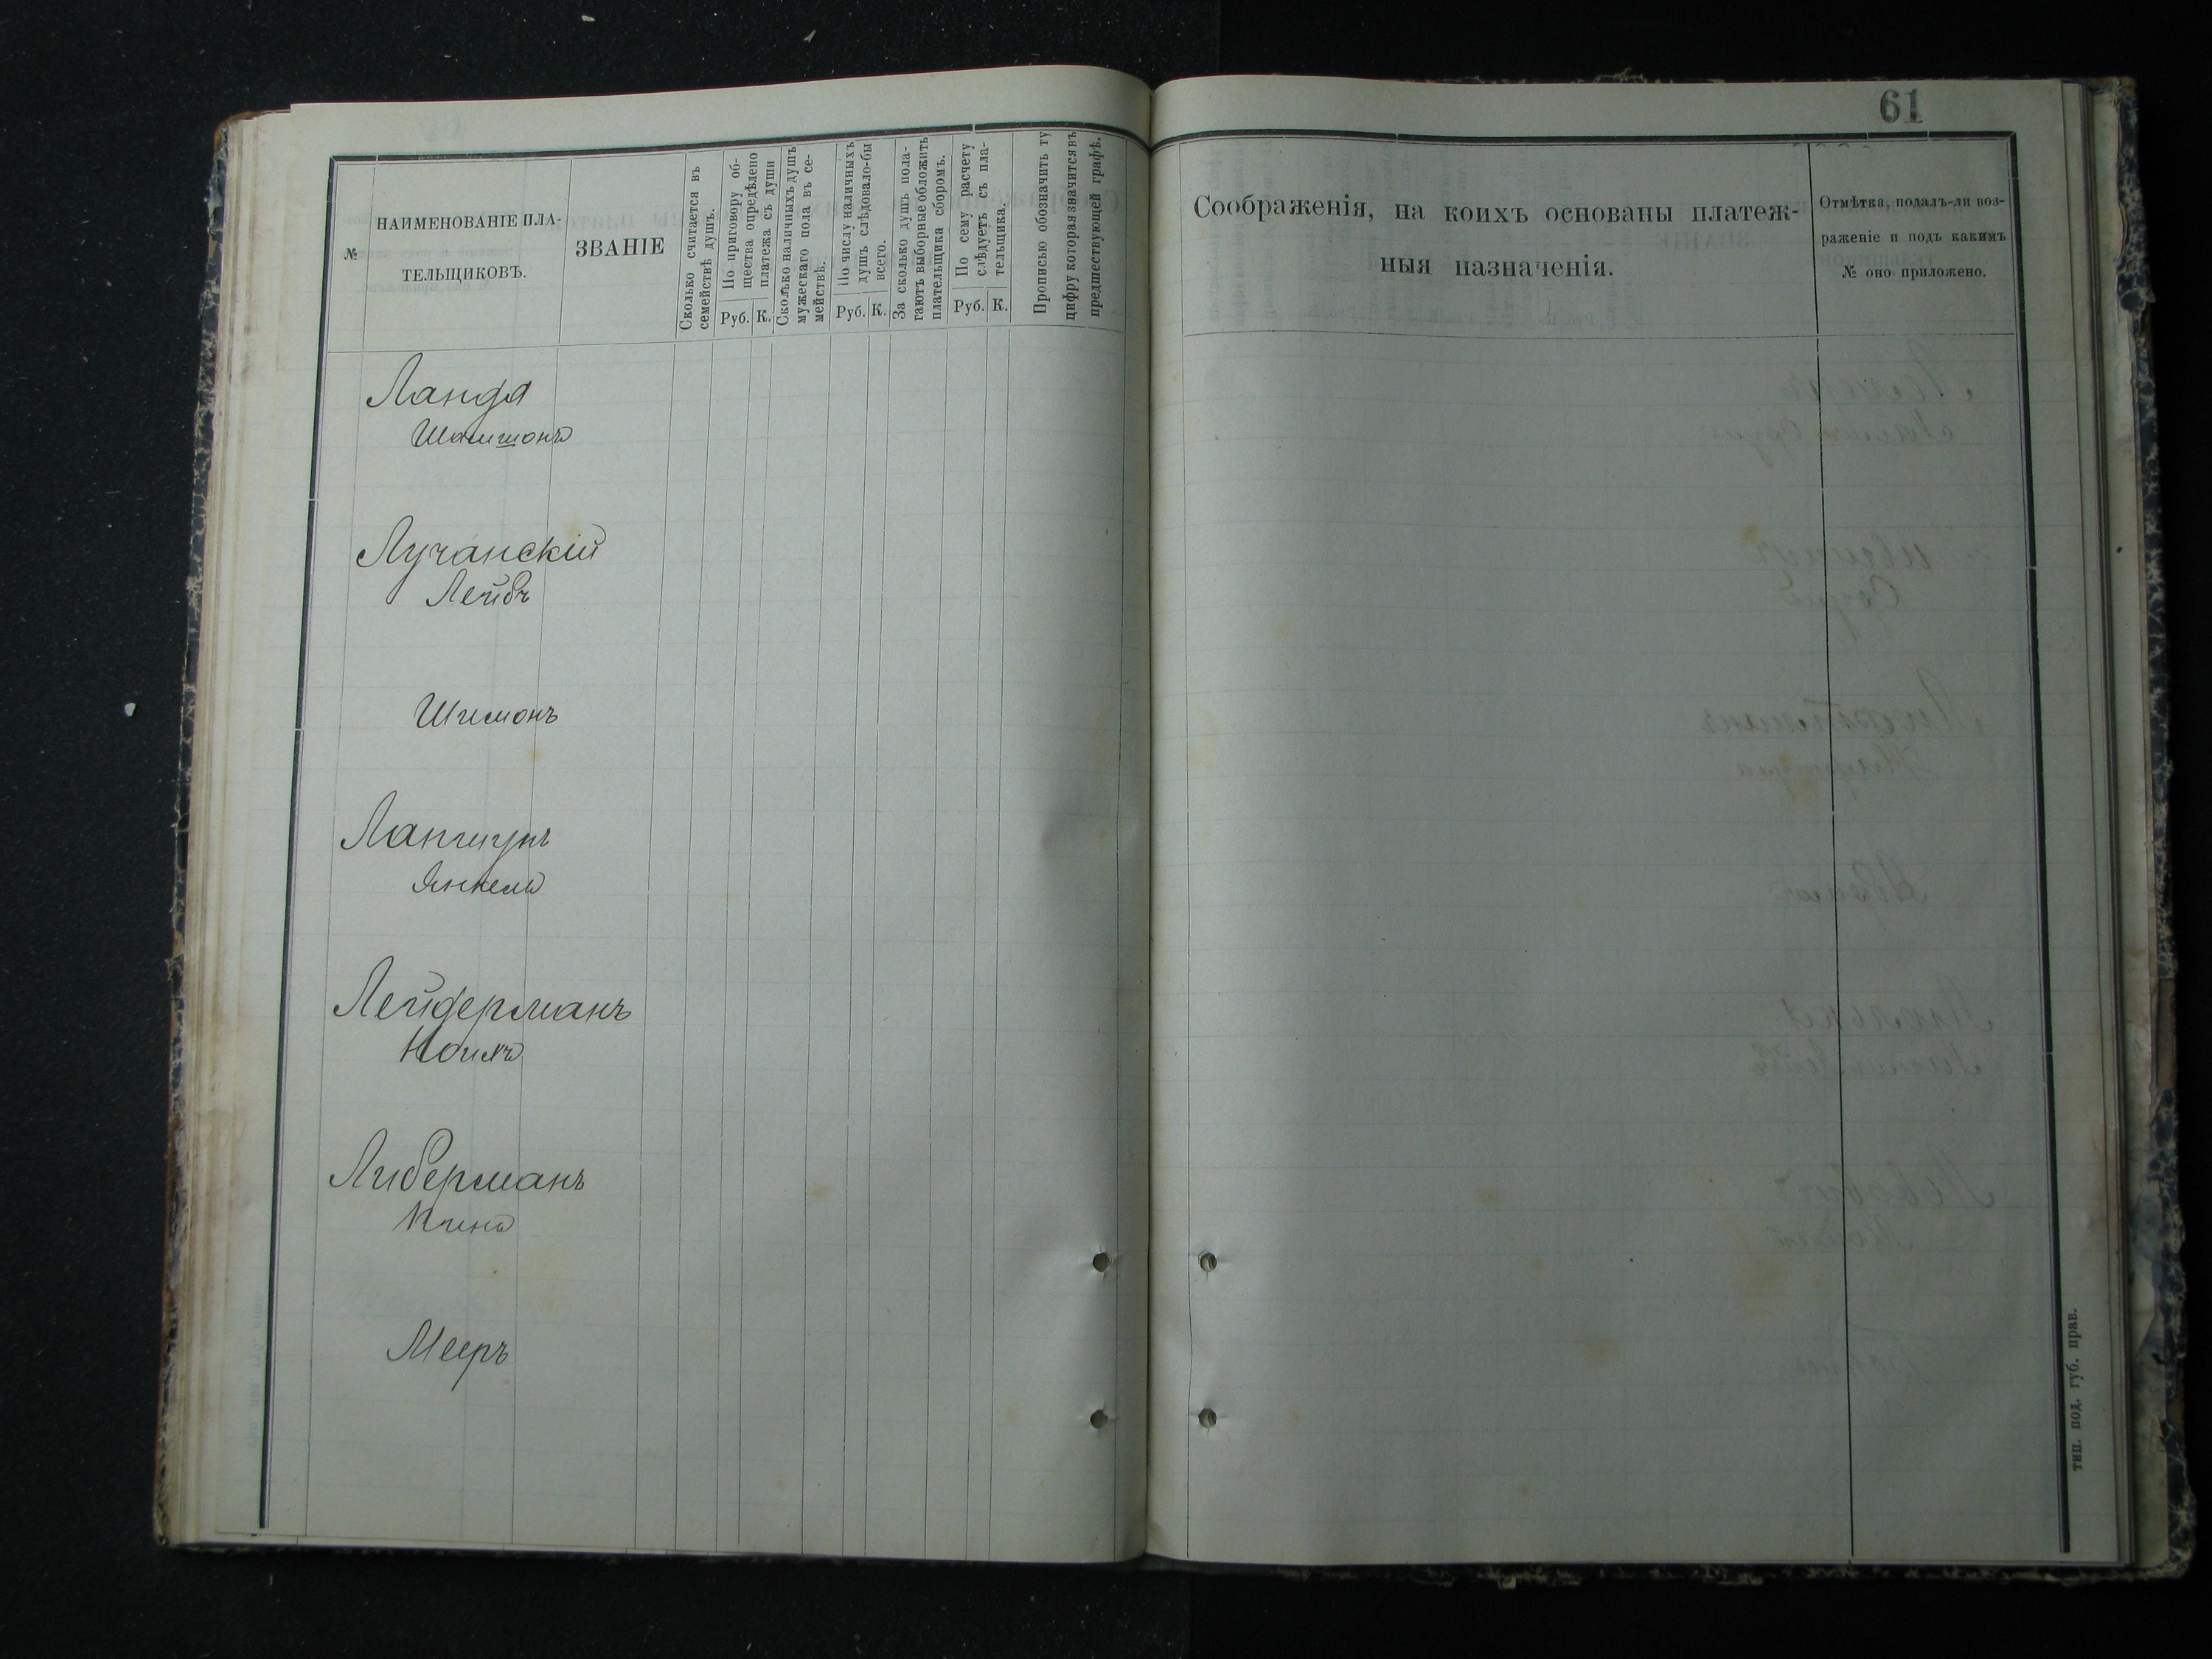 61
№
НАИМЕНОВАНІЕ ПЛА-
ТЕЛЬЩИКОВЪ.
ЗВАНІЕ
Сколько считается въ
семействѣ душъ.
По приговору об-
щества опредѣлено
платежа съ души
Руб. К.
Сколько наличныхъ душъ
мужескаго пола въ се-
мействѣ.
По числу наличныхъ
душъ слѣдовало-бы
всего.
Руб. К.
За сколько душъ пола-
гаютъ выборные обложить
плательщика сборомъ.
По сему расчету
слѣдуетъ съ пла-
тельщика.
Руб. К.
Прописью обозначить ту
цифру которая значится въ
предшествующей графѣ.
Соображенія, на коихъ основаны платеж-
ныя назначенія.
Отмѣтка, подалъ-ли воз-
раженіе и подъ какимъ
№ оно приложено.
Ланда
Шамшонъ
Лучанскій
Лейбъ
Шимонъ
Янкель
Лейдерманъ
Либерманъ
Мееръ
тип. под. губ. прав.